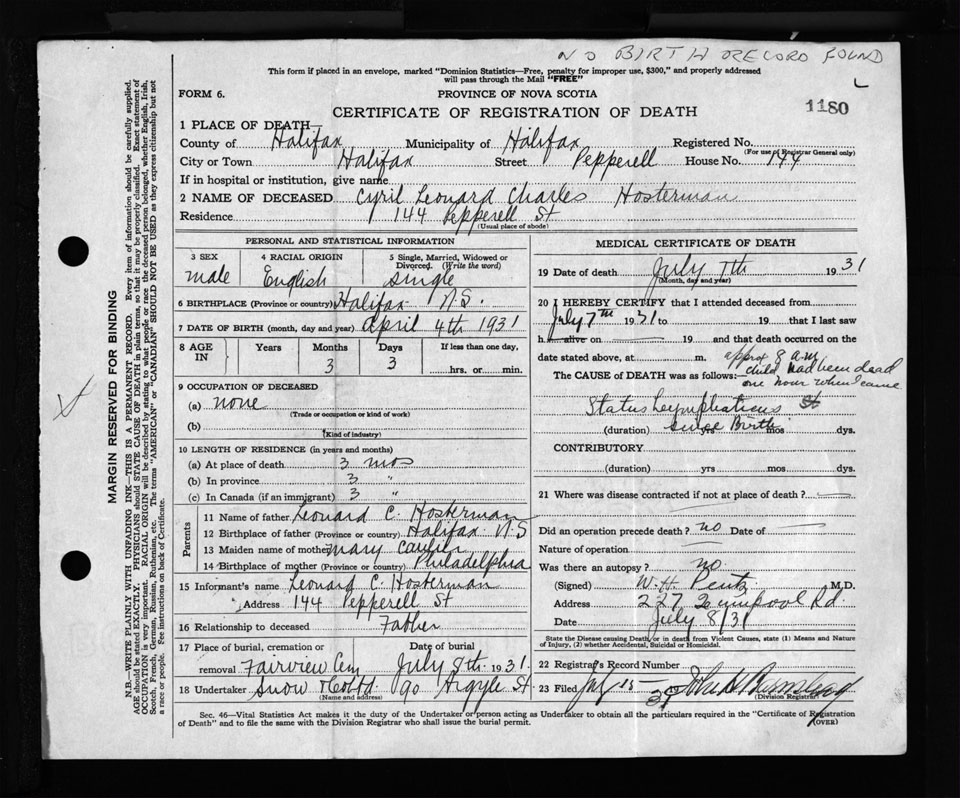 NO BIRTH RECORD FOUND
This form if placed in an envelope, marked "Dominion Statistics—Free, penalty for improper use, $300," and properly addressed
will pass through the Mail "FREE"
L
FORM 6.
PROVINCE OF NOVA SCOTIA
1180
CERTIFICATE OF REGISTRATION OF DEATH
1 PLACE OF DEATH—
County of Halifax Municipality of Halifax Registered No.
(For use of Registrar General only)
City or Town Halifax Street Pepperell House No. 144
If in hospital or institution, give name
2 NAME OF DECEASED Cyril Leonard Charles Hosterman
Residence 144 Pepperell St
(Usual place of abode)
PERSONAL AND STATISTICAL INFORMATION
3 SEX 4 RACIAL ORIGIN 5 Single, Married, Widowed or
Divorced. (Write the word)
male English Single
6 BIRTHPLACE (Province or country) Halifax N.S.
7 DATE OF BIRTH (month, day and year) April 4th 1931
8 AGE IN Years Months Days If less than one day,
3 3 hrs. or min.
9 OCCUPATION OF DECEASED
(a) none
(Trade or occupation or kind of work)
(b)
(Kind of industry)
10 LENGTH OF RESIDENCE (in years and months)
(a) At place of death 3 mos
(b) In province 3 "
(c) In Canada (if an immigrant) 3 "
Parents
11 Name of father Leonard C. Hosterman
12 Birthplace of father (Province or country) Halifax N.S
13 Maiden name of mother Mary
14 Birthplace of mother (Province or country) Philadelphia
15 Informant's name Leonard C. Hosterman
" Address 144 Pepperell St
16 Relationship to deceased Father
17 Place of burial, cremation or Date of burial
removal Fairview Cem July 8th 1931
18 Undertaker Snow & Co Ltd 90 Argyle St
(Name and address)
MEDICAL CERTIFICATE OF DEATH
19 Date of death July 7th 1931
(Month, day and year)
20 I HEREBY CERTIFY that I attended deceased from
July 7th 1931 to 19 that I last saw
h alive on 19 and that death occurred on the
date stated above, at m. approx 8 a.m
The CAUSE of DEATH was as follows:— child had been dead
one hour when I came
Status Lymphaticus
(duration) since Birth yrs mos dys.
CONTRIBUTORY
(duration) yrs mos dys.
21 Where was disease contracted if not at place of death?
Did an operation precede death? no Date of
Nature of operation
Was there an autopsy? no
(Signed) W. H. Pentz M.D.
Address 227 Quinpool Rd.
Date July 8/31
State the Disease causing Death, or in death from Violent Causes, state (1) Means and Nature
of Injury, (2) whether Accidental, Suicidal or Homicidal.
22 Registrar's Record Number
23 Filed July 13—31
(Division Registrar)
Sec. 46—Vital Statistics Act makes it the duty of the Undertaker or person acting as Undertaker to obtain all the particulars required in the "Certificate of Registration
of Death" and to file the same with the Division Registrar who shall issue the burial permit.
(OVER)
MARGIN RESERVED FOR BINDING
N.B.—WRITE PLAINLY WITH UNFADING INK—THIS IS A PERMANENT RECORD. Every item of information should be carefully supplied.
AGE should be stated EXACTLY. PHYSICIANS should STATE CAUSE OF DEATH in plain terms, so that it may be properly classified. Exact statement of
OCCUPATION is very important. RACIAL ORIGIN will be described by stating to what people or race the deceased person belonged, whether English, Irish,
Scotch, French, German, Russian, Ruthenian, etc. The terms "AMERICAN" or "CANADIAN" SHOULD NOT BE USED as they express citizenship but not
a race or people. See instructions on back of Certificate.